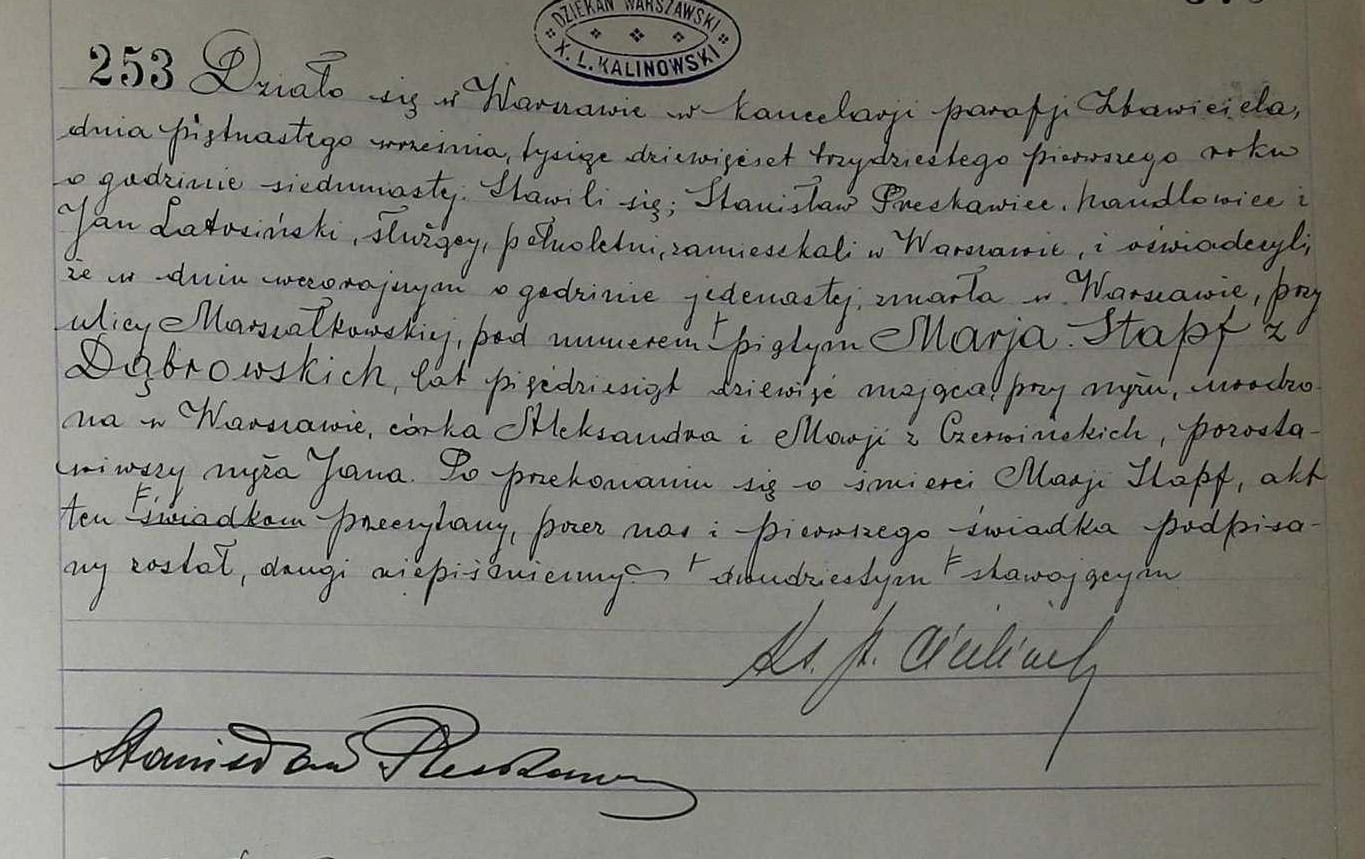 DZIEKAN WARSZAWSKI
X. L. KALINOWSKI
253 Działo się w Warszawie w kancelarji parafji Zbawiciela,
dnia piętnastego września, tysiąc dziewięćset trzydziestego pierwszego roku
o godzinie siedmnastej. Stawili się; Stanisław Preskawiec, handlowiec i
Jan Latosiński, służący, pełnoletni, zamieszkali w Warszawie, i oświadczyli,
że w dniu wczorajszym o godzinie jedenastej, zmarła w Warszawie, przy
ulicy Marszałkowskiej, pod numerem piątym Marja Stapf z
Dąbrowskich, lat pięćdziesiąt dziewięć mająca, przy mężu, urodzo-
na w Warszawie, córka Aleksandra i Marji z Czerwińskich, pozosta-
wiwszy męża Jana. Po przekonaniu się o śmierci Marji Stapf, akt
ten świadkom przeczytany, przez nas i pierwszego świadka podpisa-
ny został, drugi niepiśmienny dwudziestym stawającym
Ks.
Stanisław